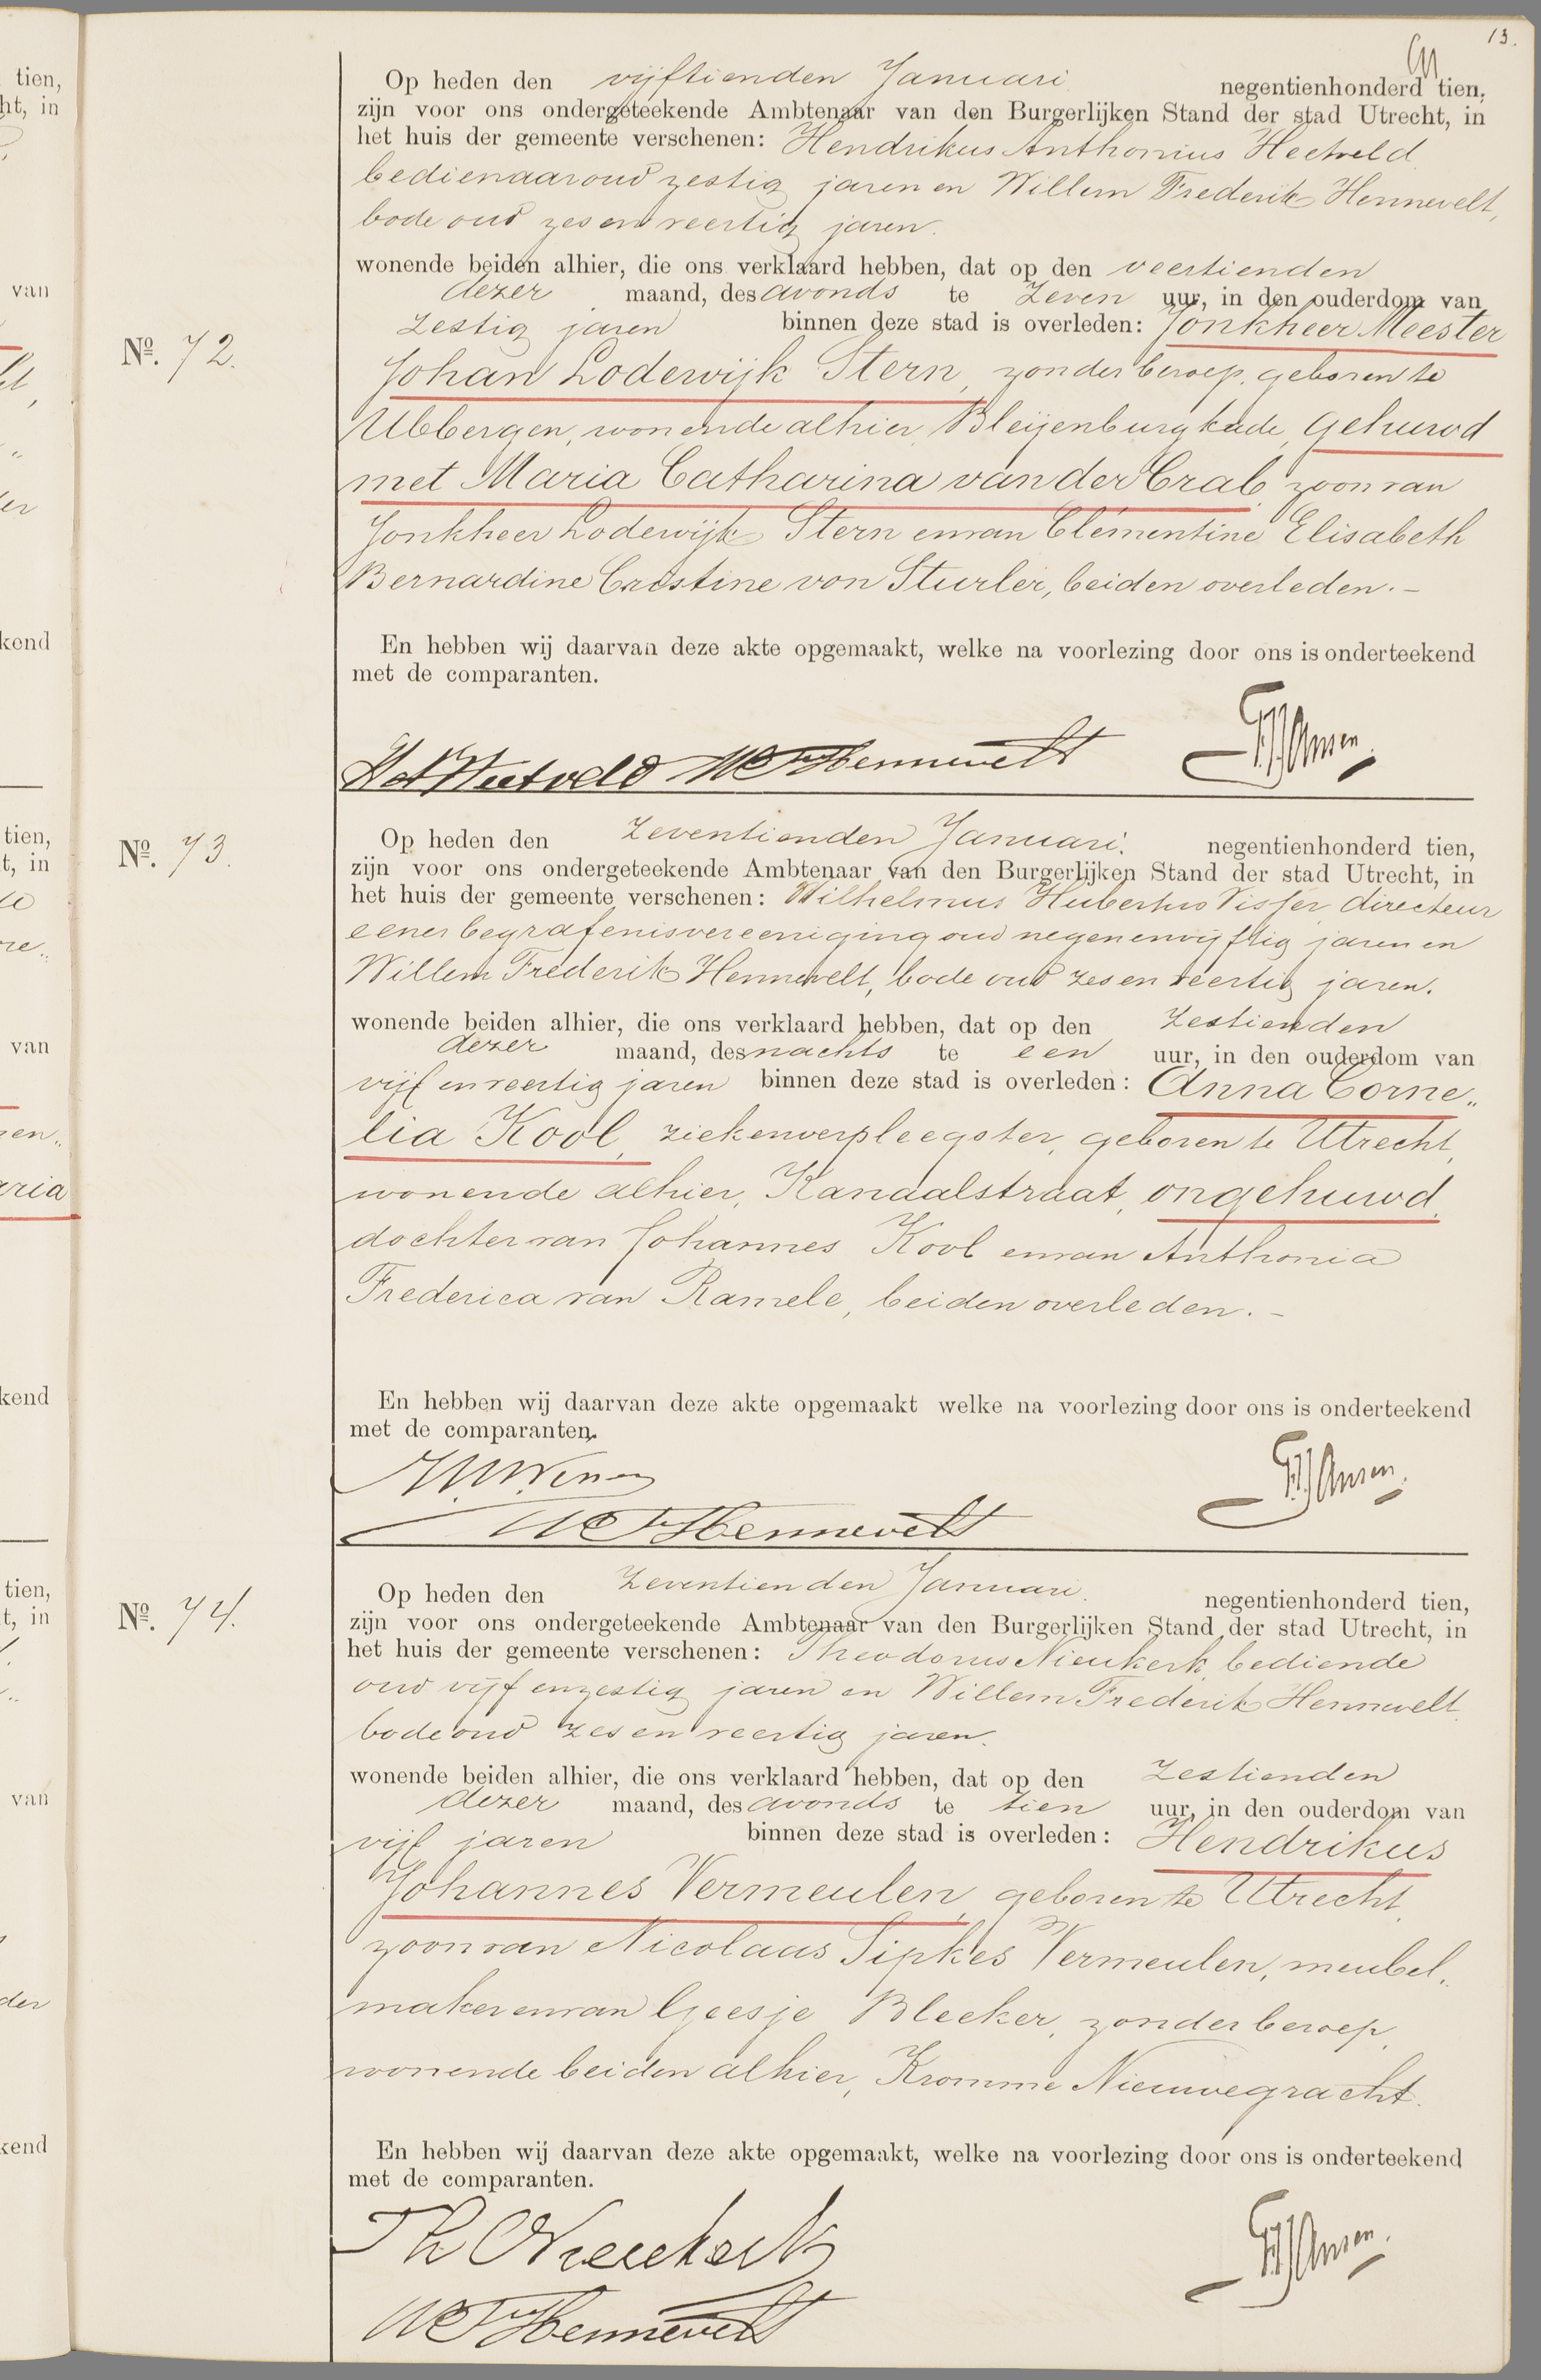 13.
Op heden den vijftienden Januari negentienhonderd tien,
zijn voor ons ondergeteekende Ambtenaar van den Burgerlijken Stand der stad Utrecht, in
het huis der gemeente verschenen: Hendrikus Anthonius Heetveld
bedienaar oud zestig jaren en Willem Frederik Hennevelt,
bode oud zes en veertig jaren.
wonende beiden alhier, die ons verklaard hebben, dat op den veertienden
dezer maand, des avonds te zeven uur, in den ouderdom van
zestig jaren binnen deze stad is overleden: Jonkheer Meester
No. 72.
Johan Lodewijk Stern, zonder beroep, geboren te
Ubbergen, wonende alhier, Bleijenburgkade, gehuwd
met Maria Catharina van der Crab, zoon van
Jonkheer Lodewijk Stern en van Clémentine Elisabeth
Bernardine Crestine von Sturler, beiden overleden.-
En hebben wij daarvan deze akte opgemaakt, welke na voorlezing door ons is onderteekend
met de comparanten.
HA Heetveld WF Hennevelt Jansen
No. 73.
Op heden den zeventienden Januari. negentienhonderd tien,
zijn voor ons ondergeteekende Ambtenaar van den Burgerlijken Stand der stad Utrecht, in
het huis der gemeente verschenen: Wilhelmus Hubertus Visser, directeur
eener begrafenisvereeniging oud negen en vijftig jaren en
Willem Frederik Hennevelt, bode oud zes en veertig jaren.
wonende beiden alhier, die ons verklaard hebben, dat op den zestienden
dezer maand, des nachts te een uur, in den ouderdom van
vijf en veertig jaren binnen deze stad is overleden: Anna Corne„
lia Kool, ziekenverpleegster, geboren te Utrecht,
wonende alhier, Kanaalstraat, ongehuwd,
dochter van Johannes Kool en van Anthonia
Frederica van Ramele, beiden overleden.-
En hebben wij daarvan deze akte opgemaakt welke na voorlezing door ons is onderteekend
met de comparanten.
Jansen
WF Hennevelt
No. 74.
Op heden den zeventienden Januari. negentienhonderd tien,
zijn voor ons ondergeteekende Ambtenaar van den Burgerlijken Stand der stad Utrecht, in
het huis der gemeente verschenen: Theodorus Nieukerk, bediende
oud vijf en zestig jaren en Willem Frederik Hennevelt
bode oud zes en veertig jaren.
wonende beiden alhier, die ons verklaard hebben, dat op den zestienden
dezer maand, des avonds te tien uur, in den ouderdom van
vijf jaren binnen deze stad is overleden: Hendrikus
Johannes Vermeulen, geboren te Utrecht,
zoon van Nicolaas Sipkes Vermeulen, meubel„
maker en van Geesje Bleeker, zonder beroep,
wonende beiden alhier, Kromme Nieuwegracht.
En hebben wij daarvan deze akte opgemaakt, welke na voorlezing door ons is onderteekend
met de comparanten.
Th Nieukerk Jansen
WF Hennevelt